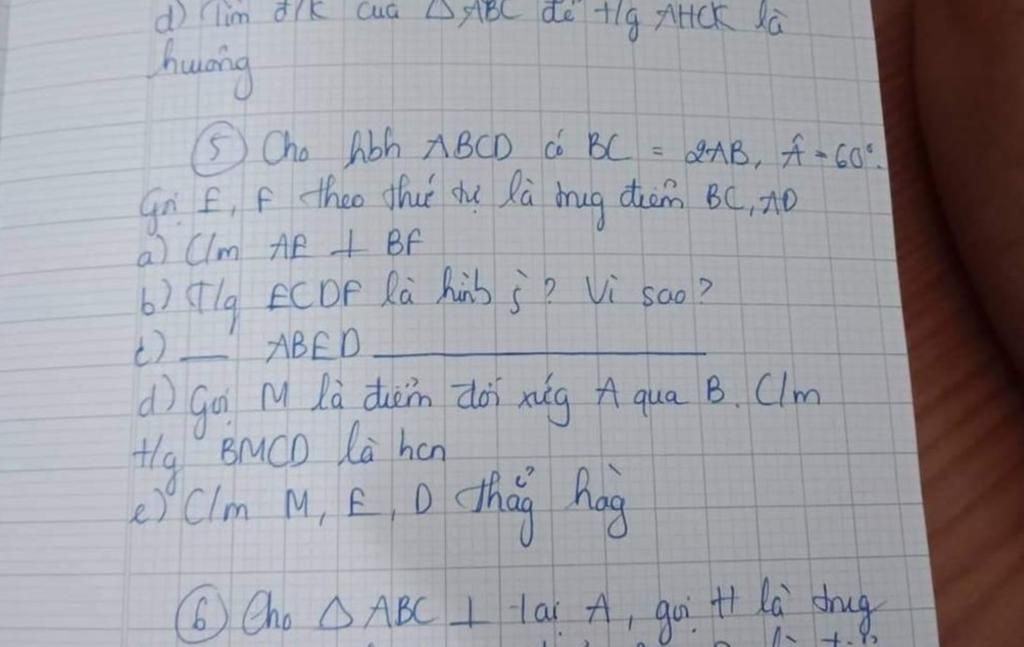 d) Tìm đ/k của △ABC để t/g AHCK là
hvuông
⑤ Cho hbh ABCD có BC = 2AB, Â = 60°.
Gọi E, F theo thứ tự là trug điểm BC, AD
a) C/m AE ⊥ BF
b) T/g ECDF là hình gì? Vì sao?
c) — ABED ————
d) Gọi M là điểm đối xứg A qua B. C/m
t/g BMCD là hcn
e) C/m M, E, D thẳg hàg
⑥ Cho △ ABC ⊥ tại A, gọi H là trug